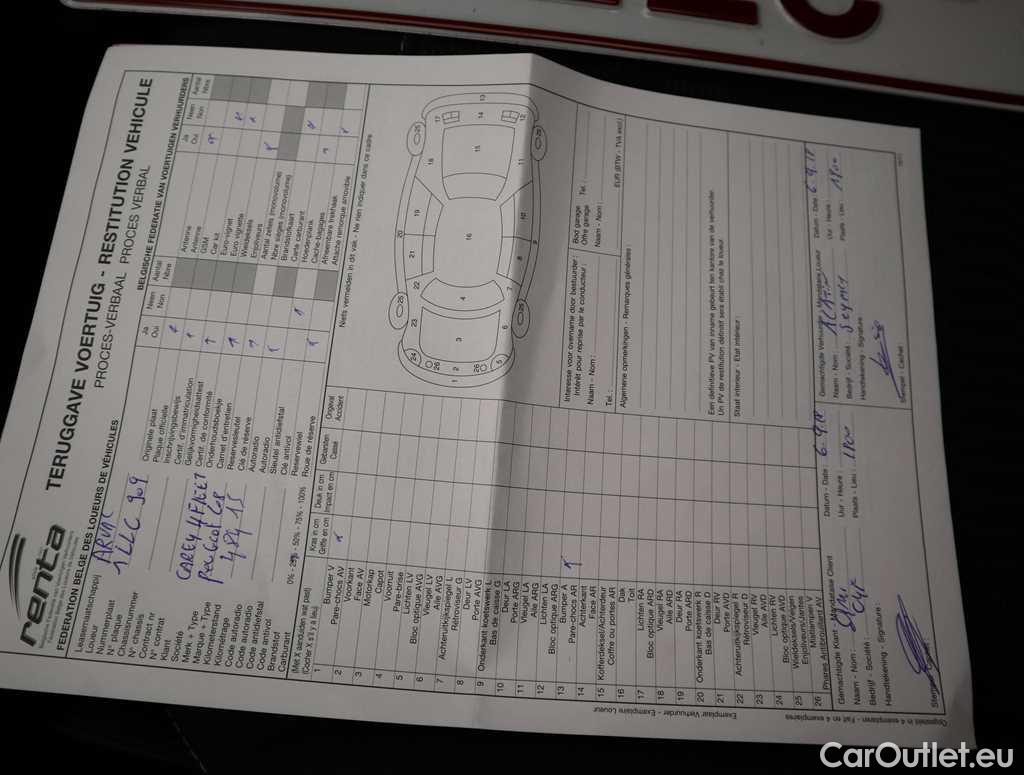 renta
FEDERATION BELGE DES LOUEURS DE VÉHICULES
TERUGGAVE VOERTUIG - RESTITUTION VEHICULE
PROCES-VERBAAL PROCES VERBAL
BELGISCHE FEDERATIE VAN VOERTUIGEN VERHUURDERS
Leasemaatschappij
Loueur
ARVAL
Nummerplaat
N° plaque
1LLC 909
Chassisnummer
N° chassis
Contract nr
N° contrat
Klant
Société
Merk + Type
Marque + Type
PEUGEOT
Kilometerstand
Kilométrage
48415
Code autoradio
Code autoradio
Code antidiefstal
Code antivol
Brandstof
Carburant
0% - 25% - 50% - 75% - 100%
Ja
Oui
Neen
Non
Aantal
Nbre
Originele plaat
Plaque officielle
Inschrijvingsbewijs
Certif. d'immatriculation
Gelijkvormigheidsattest
Certif. de conformité
Onderhoudsboekje
Carnet d'entretien
Reservesleutel
Clé de réserve
Autoradio
Autoradio
Sleutel antidiefstal
Clé antivol
Reservewiel
Roue de réserve
Ja
Oui
Neen
Non
Aantal
Nbre
Antenne
Antenne
GSM
Car kit
Euro-vignet
Euro vignette
Wieldeksels
Enjoliveurs
Aantal zetels (monovolume)
Nbre sièges (monovolume)
Brandstofkaart
Carte carburant
Hoedenplank
Cache-bagages
Afneembare trekhaak
Attache remorque amovible
(Met X aanduiden wat past)
(Cocher X s'il y a lieu)
Kras in cm
Griffe en cm
Deuk in cm
Impact en cm
Gebarsten
Cassé
Ongeval
Accident
Niets vermelden in dit vak - Ne rien indiquer dans ce cadre
1 Bumper V
Pare-chocs AV
2 Voorkant
Face AV
3 Motorkap
Capot
4 Voorruit
Pare-brise
5 Lichten LV
Bloc optique AVG
6 Vleugel LV
Aile AVG
7 Achteruitkijkspiegel L
Rétroviseur G
8 Deur LV
Porte AVG
9 Onderkant koetswerk L
Bas de caisse G
10 Deur LA
Porte ARG
11 Vleugel LA
Aile ARG
12 Lichten LA
Bloc optique ARG
13 Bumper A
Pare-chocs AR
14 Achterkant
Face AR
15 Kofferdeksel/Achterdeur
Coffre ou portes AR
16 Dak
Toit
17 Lichten RA
Bloc optique ARD
18 Vleugel RA
Aile ARD
19 Deur RA
Porte ARD
20 Onderkant koetswerk R
Bas de caisse D
21 Deur RV
Porte AVD
22 Achteruitkijkspiegel R
Rétroviseur D
23 Vleugel RV
Aile AVD
24 Lichten RV
Bloc optique AVD
25 Wieldeksels/Velgen
Enjolivers/Jantes
26 Mistlampen V
Phares Antibrouillard AV
Interesse voor overname door bestuurder :
Intérêt pour reprise par le conducteur :
Naam - Nom :
Tel. :
Bod garage
Offre garage
Tel. :
Naam - Nom :
EUR (BTW - TVA excl.)
Algemene opmerkingen - Remarques générales :
Een definitieve PV van inname gebeurt ten kantore van de verhuurder.
Un PV de restitution définitif sera établi chez le loueur.
Staat interieur - Etat intérieur :
Gemachtigde Klant - Mandataire Client
Datum - Date :
Naam - Nom :
Uur - Heure :
Bedrijf - Société :
Plaats - Lieu :
Handtekening - Signature :
Gemachtigde Verhuurder - Mandataire Loueur
Datum - Date
Naam - Nom :
Uur - Heure :
Bedrijf - Société :
Plaats - Lieu :
Handtekening - Signature :
Stempel - Cachet :
Opgesteld in 4 exemplaren - Fait en 4 exemplaires
Exemplaar Verhuurder - Exemplaire Loueur
CarOutlet.eu